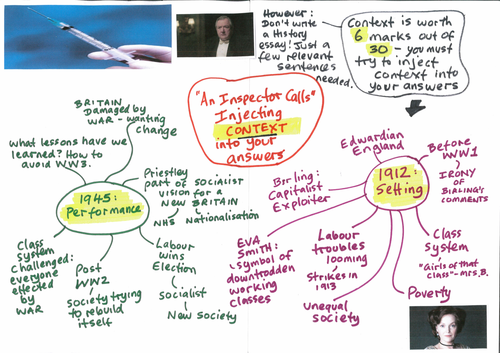 However:
Don't write
a History
essay! Just a
few relevant
sentences
needed.
Context is worth
6 marks out of
30 - you must
try to inject
context into
your answers
"An Inspector Calls"
Injecting
CONTEXT
into your
answers
BRITAIN
Damaged by
WAR - wanting
change
What lessons have we
learned? How to
avoid WW3.
Priestley
part of SOCIALIST
vision for a
NEW BRITAIN
NHS Nationalisation
1945:
Performance
Class
system
challenged:
everyone
effected
by
WAR
Post
WW2
Society trying
to rebuild
itself
Labour
wins
Election
Socialist
New society
Edwardian
England
Before
WW1
IRONY
OF
BIRLING'S
COMMENTS
Birling:
Capitalist
Exploiter
1912:
Setting
EVA
SMITH:
symbol of
downtrodden
working
classes
Labour
troubles
looming
Strikes in
1913
Unequal
society
Poverty
Class
System
"Girls of that
class" - Mrs. B.